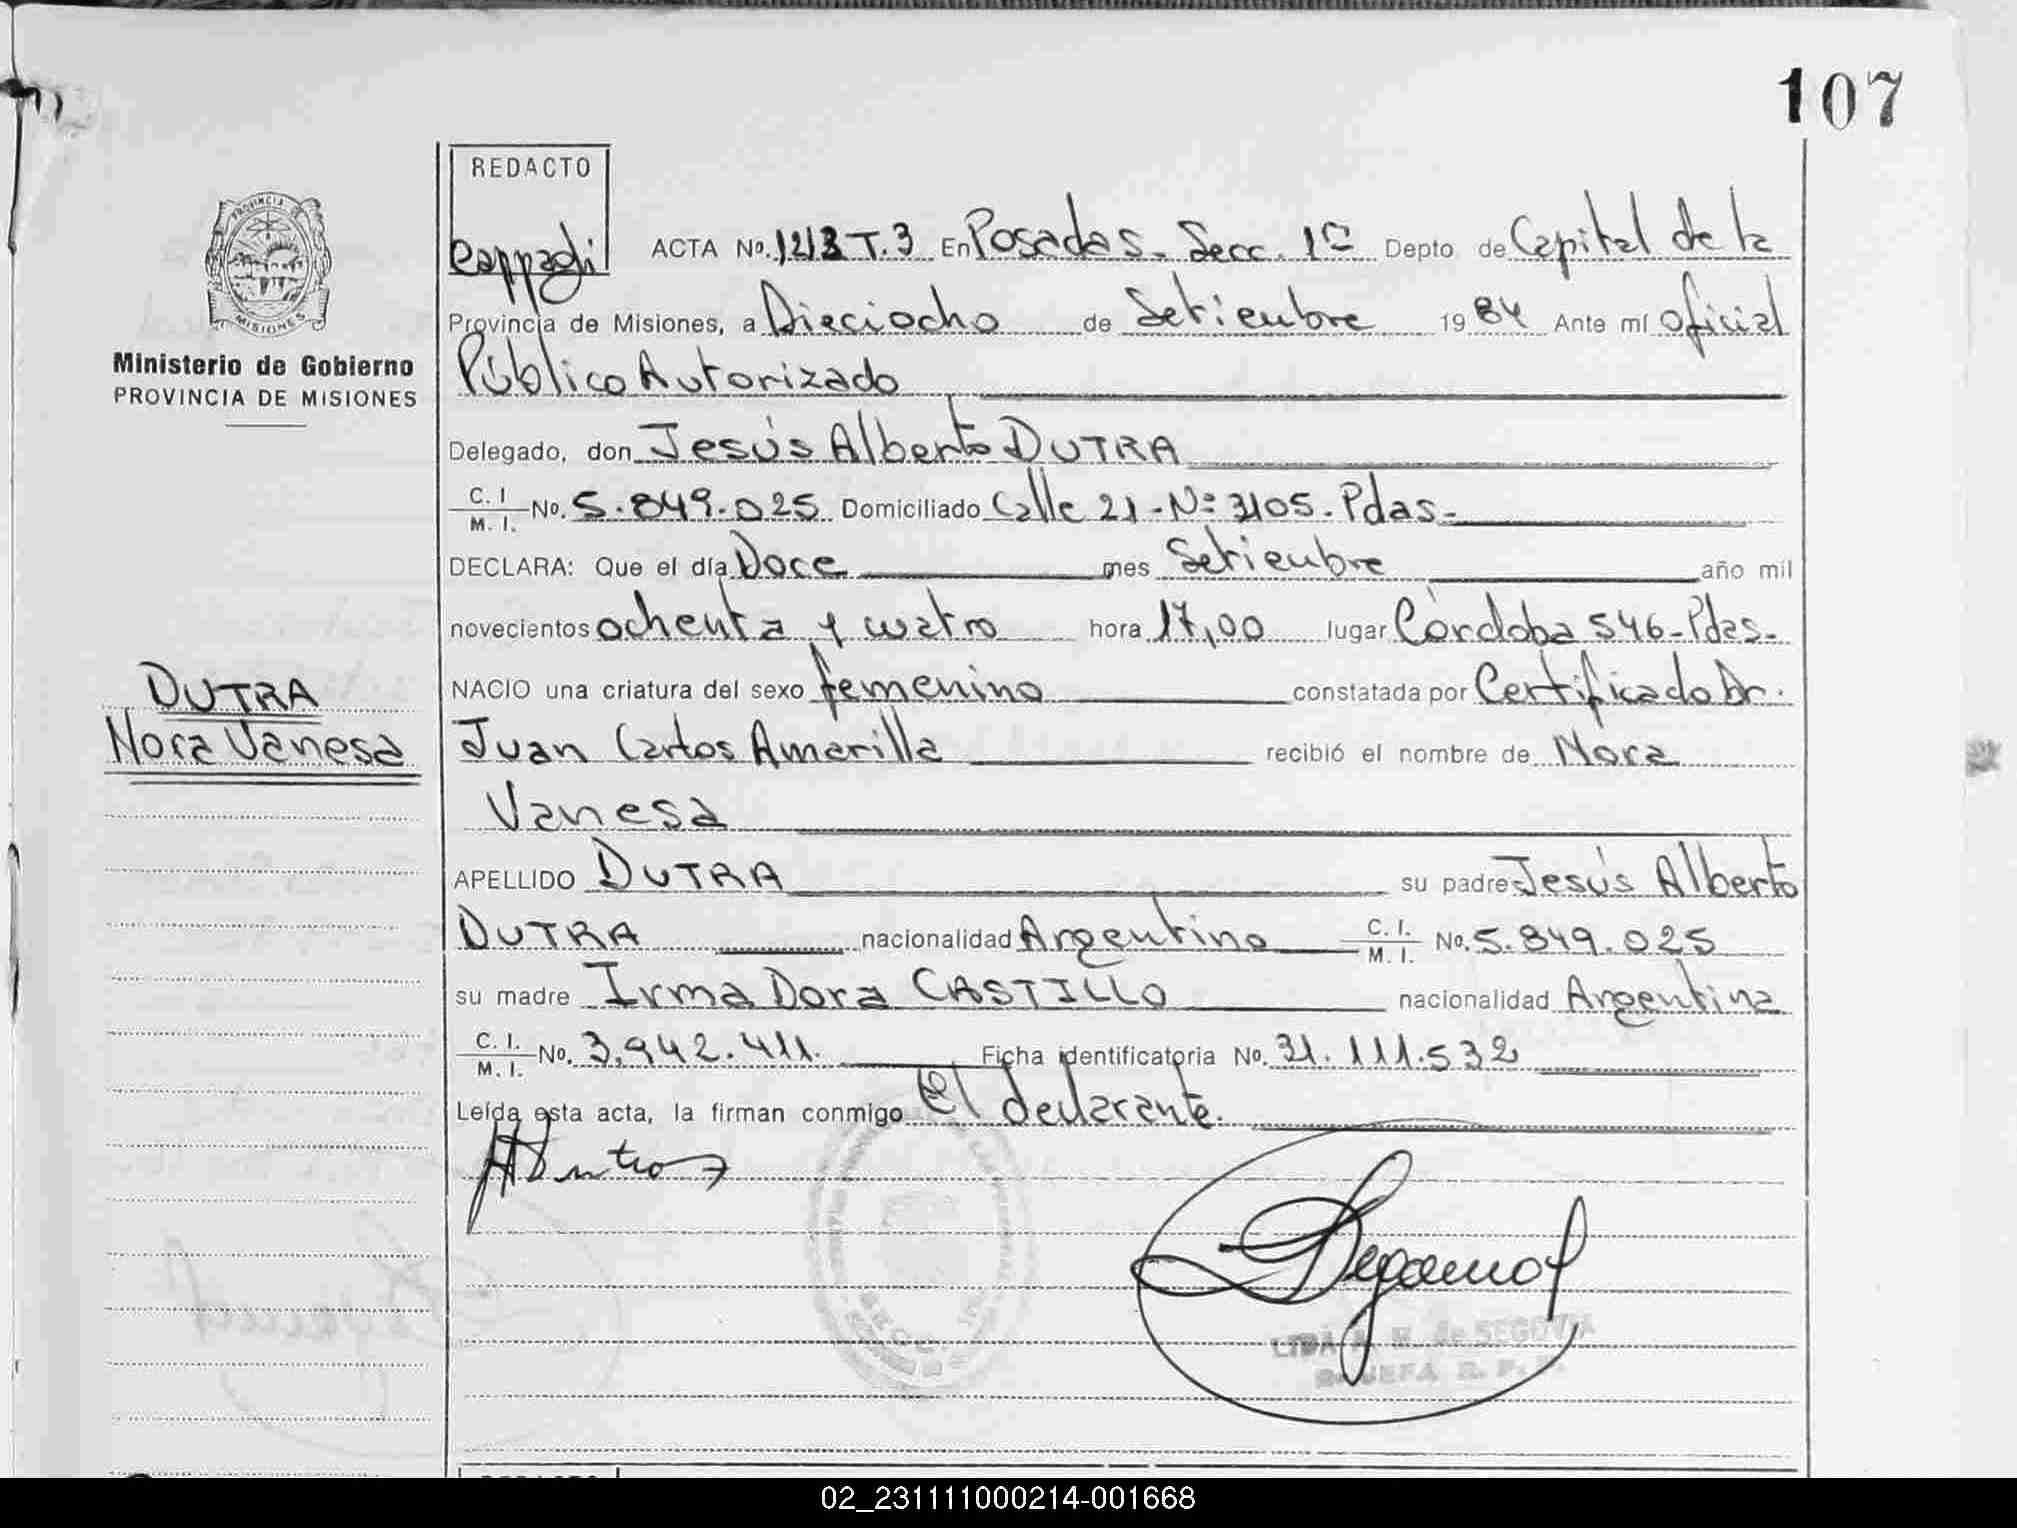 107
REDACTO
PROVINCIA DE
MISIONES
Ministerio de Gobierno
PROVINCIA DE MISIONES
ACTA No. 1213 T.3 En Posadas - Secc. 1ª Depto. de Capital de la
Provincia de Misiones, a Dieciocho de Setiembre 1984 Ante mí Oficial
Público Autorizado
Delegado, don Jesús Alberto DUTRA
C. I. M. I. No. 5.849.025 Domiciliado Calle 21 - Nº 3105 - Pdas -
DECLARA: Que el día Doce mes Setiembre año mil
novecientos ochenta y cuatro hora 17,00 lugar Córdoba 546 - Pdas -
DUTRA
Nora Vanesa
NACIO una criatura del sexo femenino constatada por Certificado Dr.
Juan Carlos Amarilla recibió el nombre de Nora
Vanesa
APELLIDO DUTRA su padre Jesús Alberto
DUTRA nacionalidad Argentino C. I. M. I. No. 5.849.025
su madre Irma Dora CASTILLO nacionalidad Argentina
C. I. M. I. No. 3.942.411. Ficha identificatoria No. 31.111.532
Leída esta acta, la firman conmigo El declarante.
de SEGOVIA
02_231111000214-001668